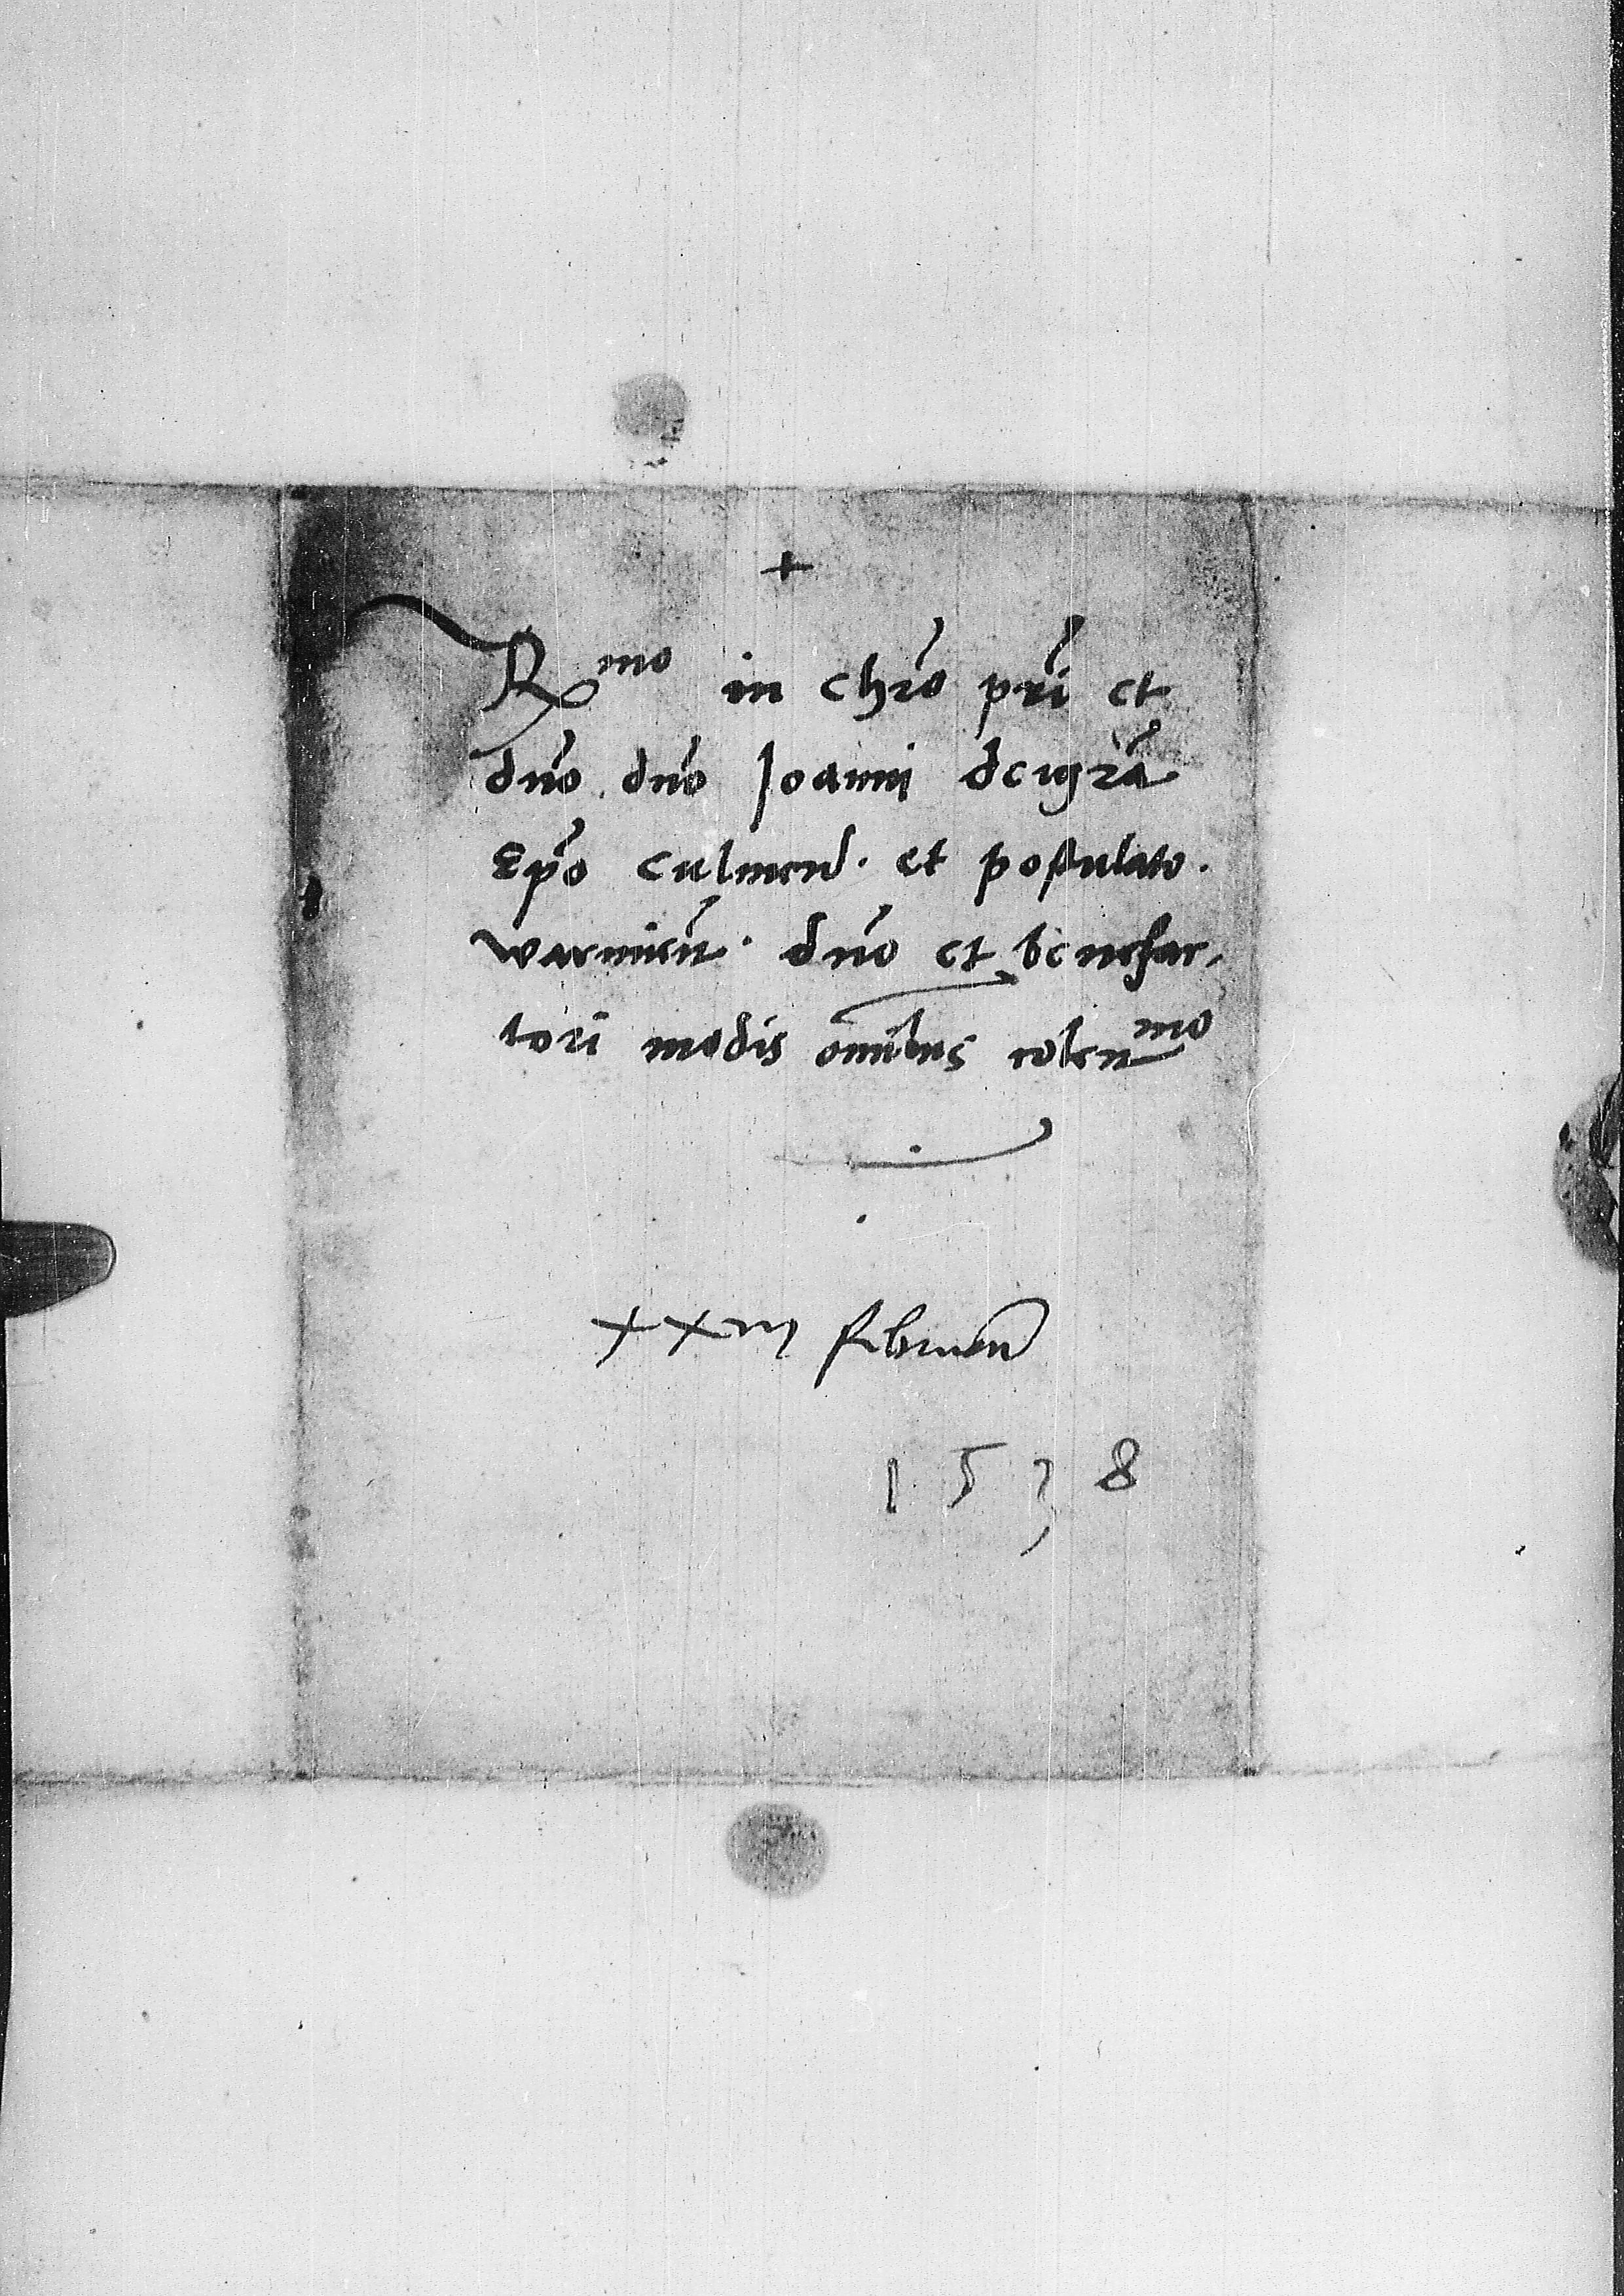 +
R^mo in chro pri et
dno dno Joanni dei gra
Epo culmen. et postulato.
warmien. dno et benefac,
tori modis omnibus colen^mo
xxiij februarii
1538